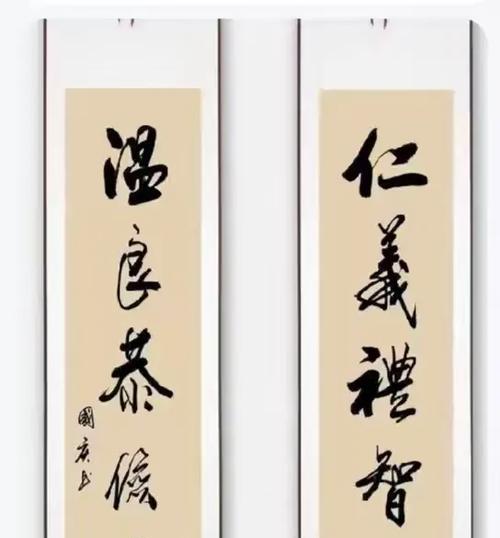 仁義禮智
溫良恭儉
國慶书